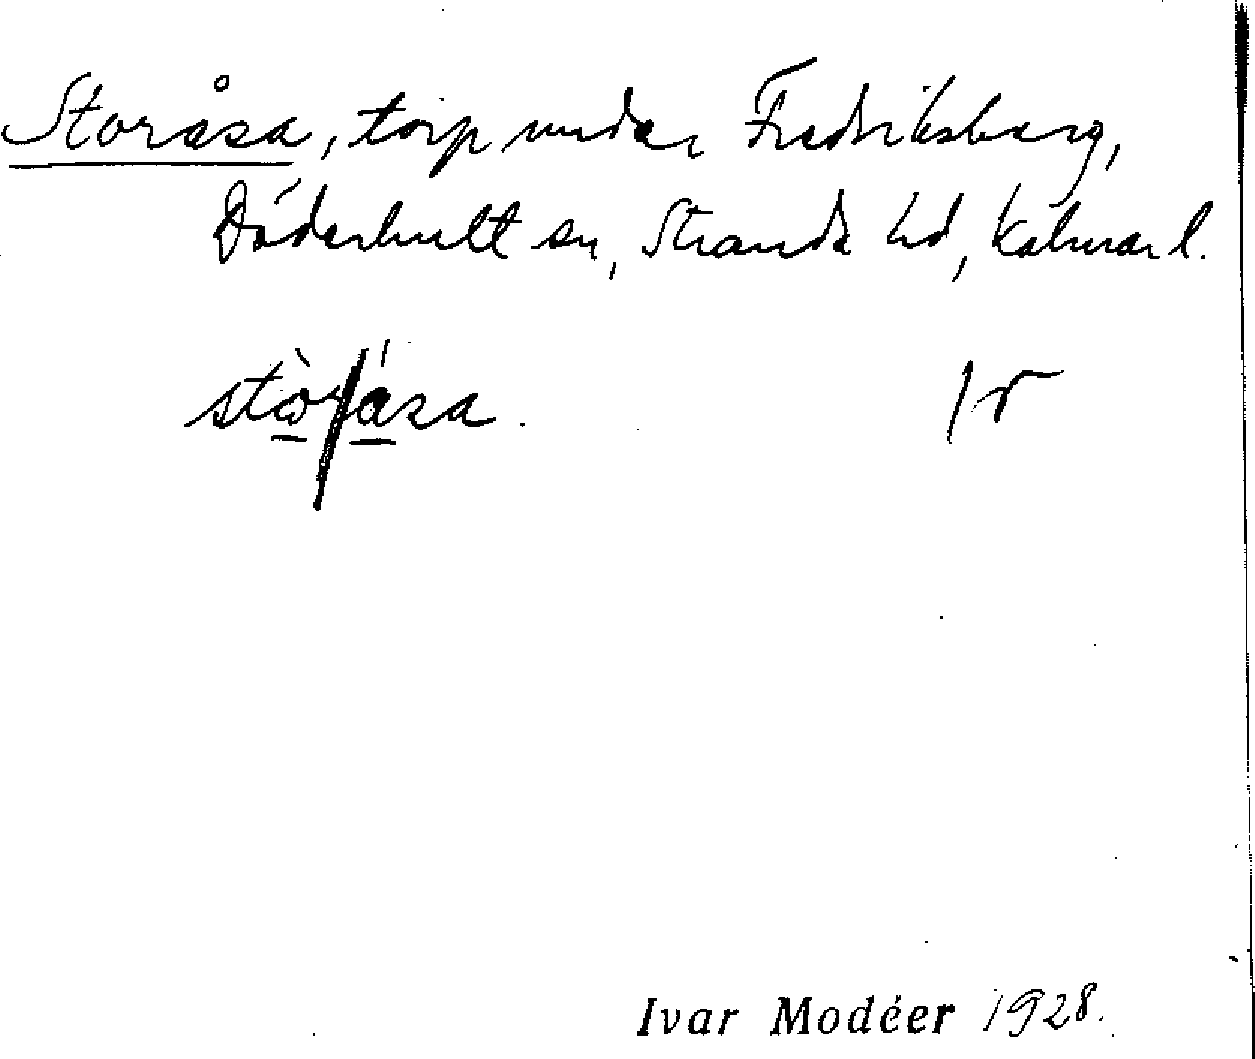 Storåsa, torp under Fredriksberg,
Döderhult sn, Stranda hd, Kalmar l.
stòr/ása.
Ivar Modéer 1928.